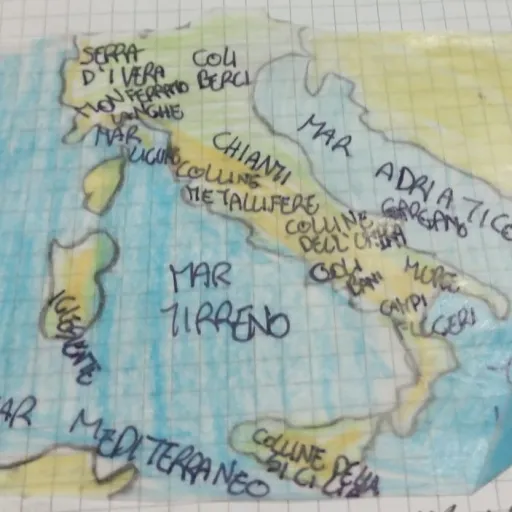 SERRA
D'IVERA
COLI
BERCI
MONFERRATO
LANGHE
MAR
LIGURE
CHIANTI
COLLINE
METALLIFERE
MAR
ADRIATICO
GARGANO
COLLINE
DELL'UMBRIA
COLLI
ALBANI
MURGE
CAMPI
FLEGREI
MAR
TIRRENO
IGLESIENTE
MAR MEDITERRANEO
COLLINE DELLA
SICILIA